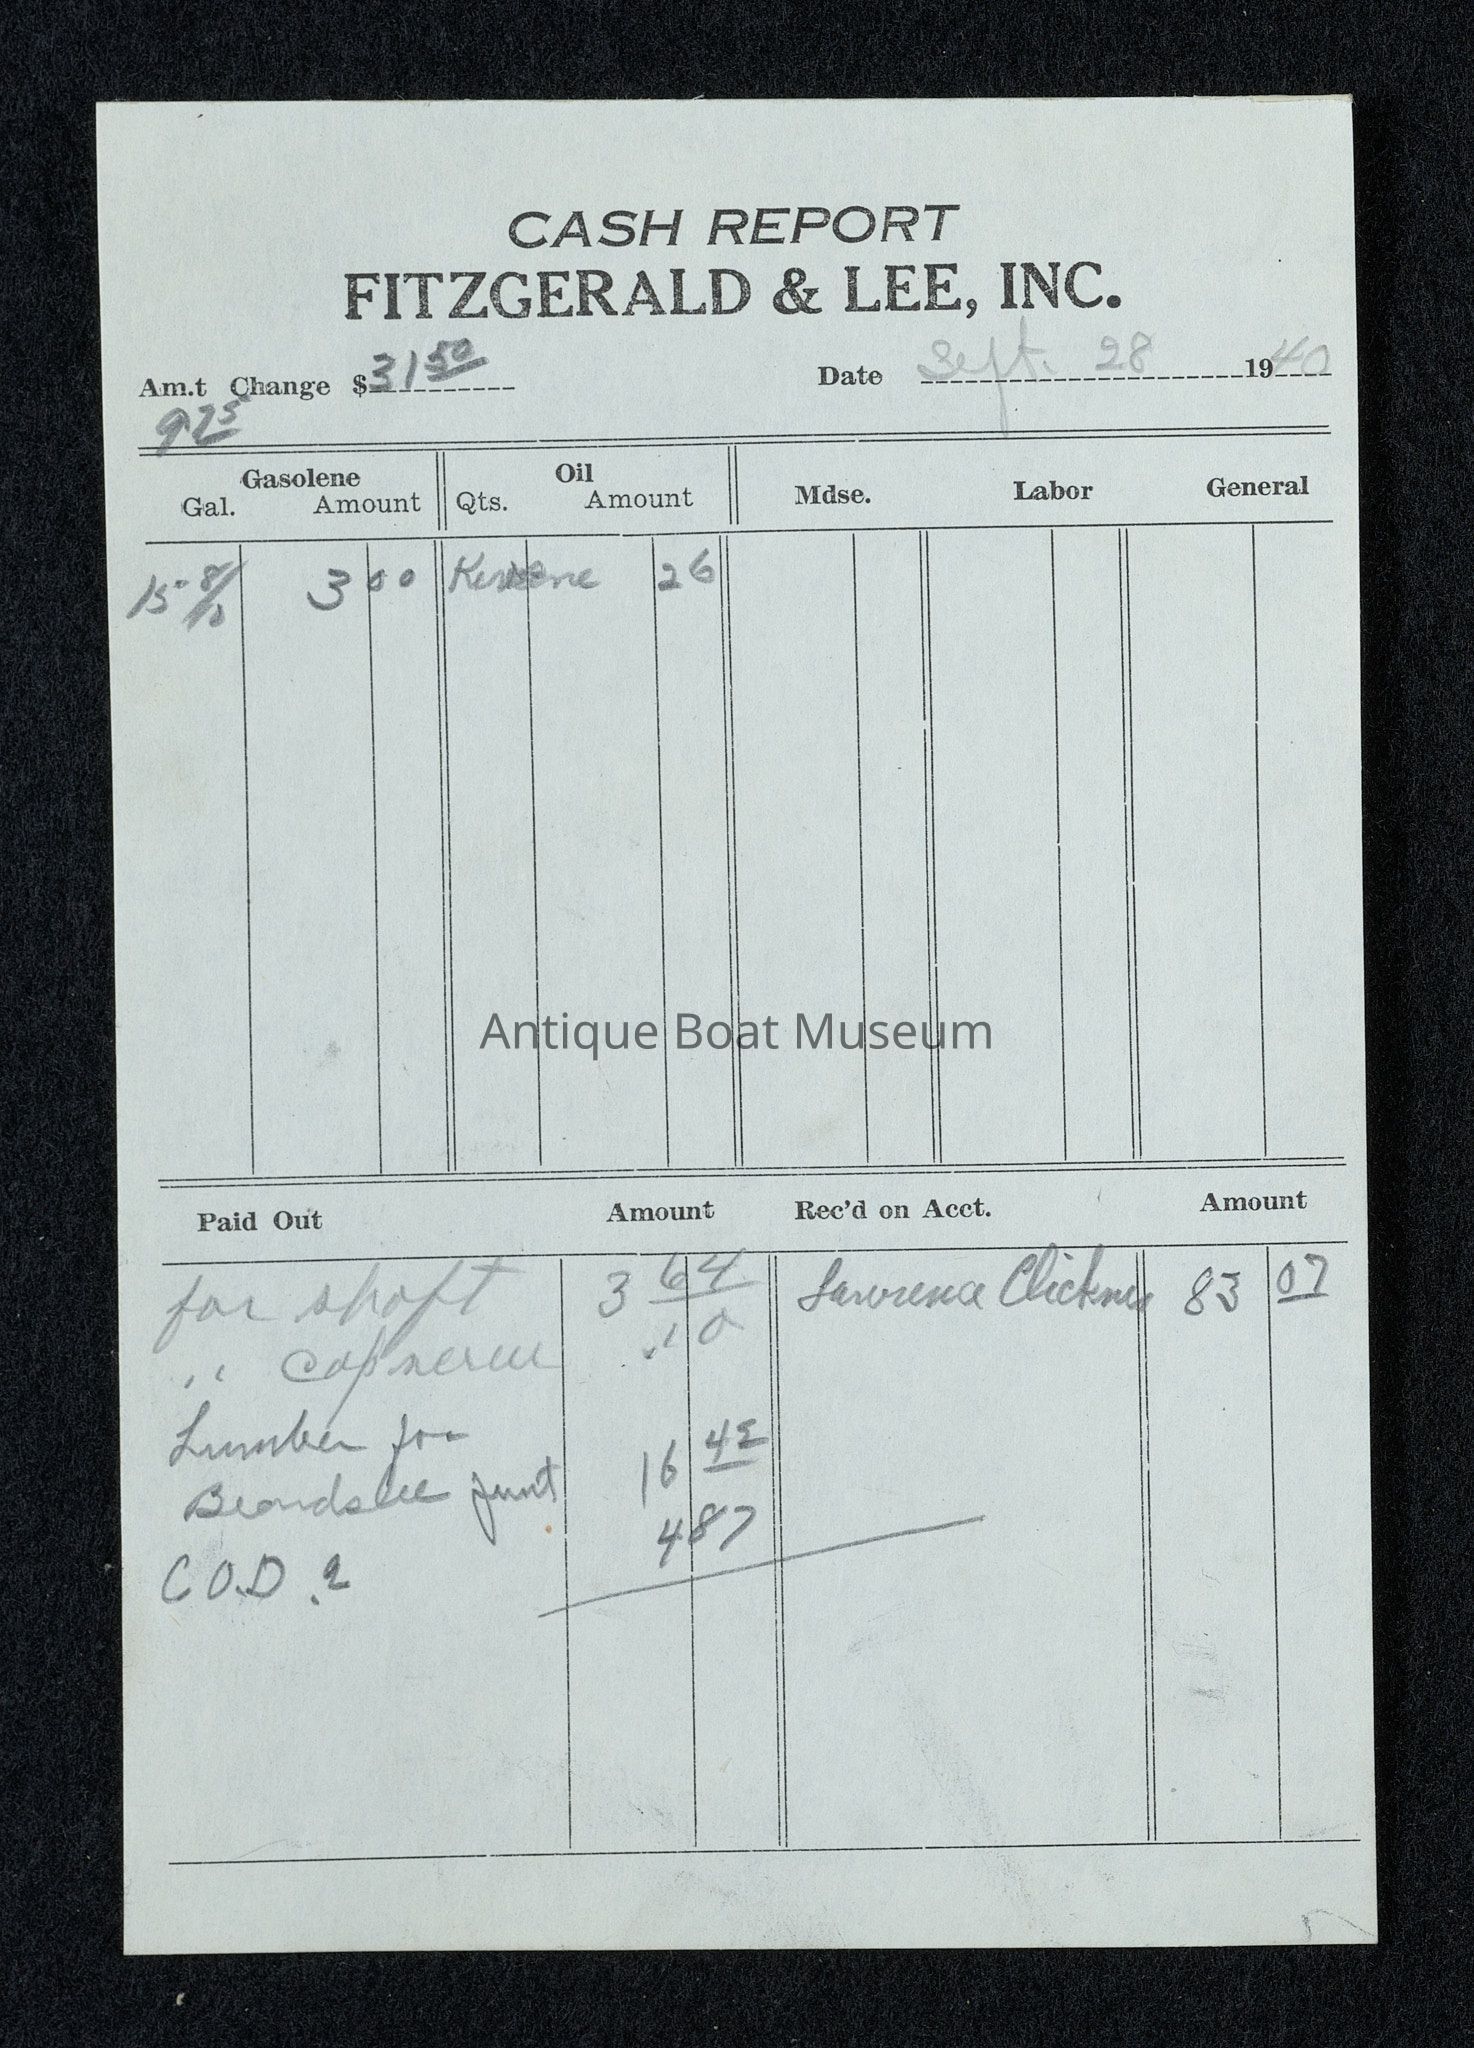 CASH REPORT
FITZGERALD & LEE, INC.
Am.t Change $31 50 Date Sept. 28 1940
9 75
Gasolene Oil
Gal. Amount Qts. Amount Mdse. Labor General
15 8/10 3 00 Kerosene 26
Antique Boat Museum
Paid Out Amount Rec'd on Acct. Amount
for shaft 3 64 Lawrence 83 07
" capscrew .10
Lumber for
Beardslee 16 42
C.O.D. 4 87